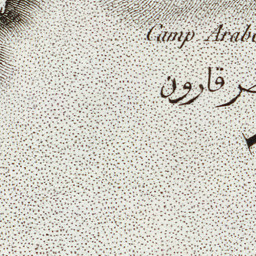 Camp Arabe
قارون